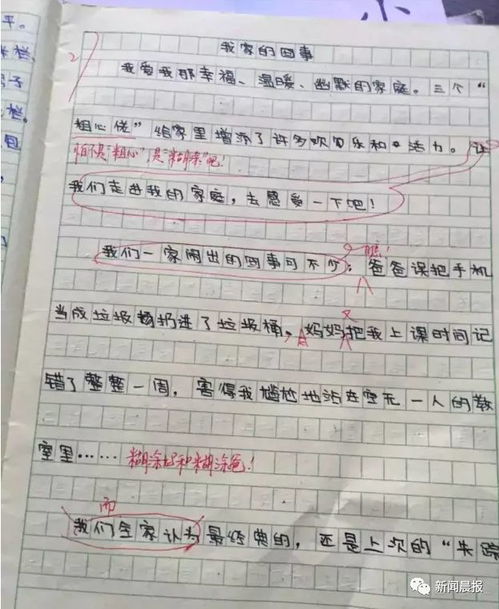 平。
栏
我家的囧事
我爱我那幸福、温暖、幽默的家庭。三个“
粗心佬”给家里增添了许多欢同乐和活力。让
怕不是“粗心”是“糊涂”吧！
我们走进我的家庭，去感受一下吧！
瞧！
我们一家闹出的囧事可不少：爸爸误把手机
又
当成垃圾扔进了垃圾桶，妈妈把我上课时间记
错了整整一周，害得我尴尬地站在空无一人的教
室里……糊涂妈和糊涂爸！
而
我们全家认为最经典的，还是上次的“失踪
新闻晨报